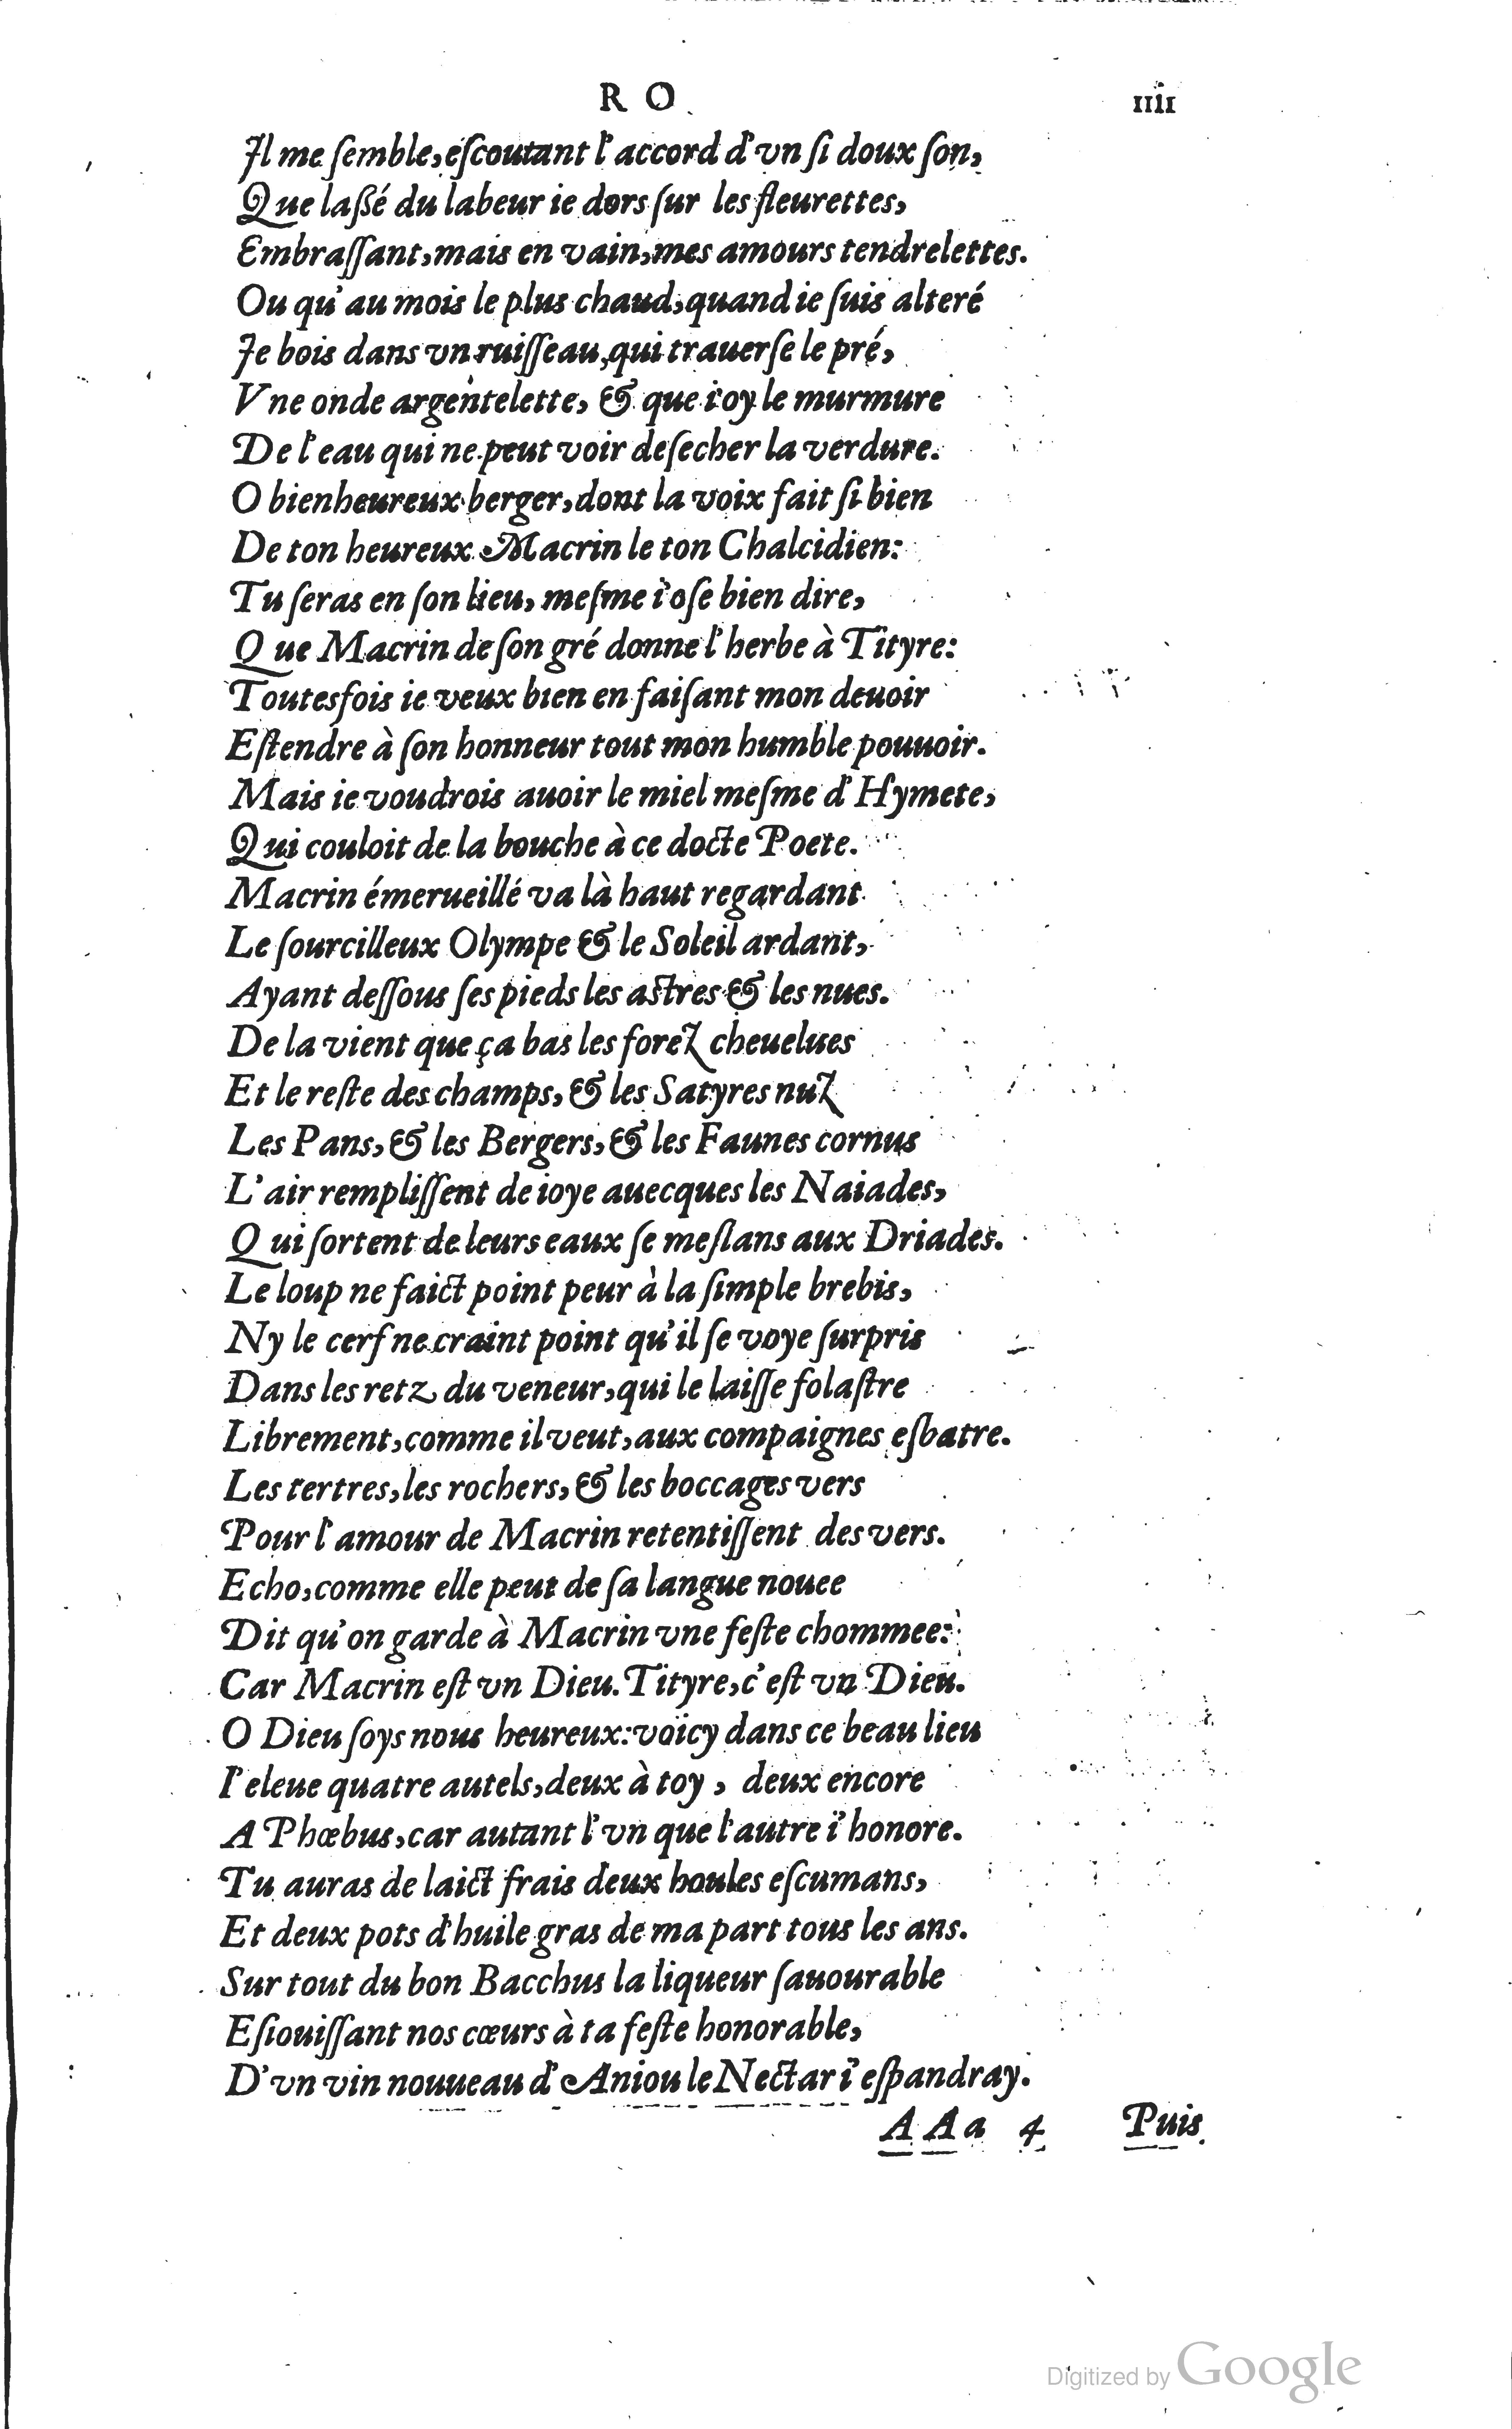 R O iiii
Il me ſemble, eſcoutant l'accord d'vn ſi doux ſon,
Que laßé du labeur ie dors ſur les fleurettes,
Embraſſant, mais en vain, mes amours tendrelettes.
Ou qu'au mois le plus chaud, quand ie ſuis alteré
Je bois dans vn ruiſſeau, qui trauerſe le pré,
Vne onde argentelette, & que i'oy le murmure
De l'eau qui ne peut voir deſecher la verdure.
O bienheureux berger, dont la voix fait ſi bien
De ton heureux Macrin le ton Chalcidien:
Tu ſeras en ſon lieu, meſme i'oſe bien dire,
Que Macrin de ſon gré donne l'herbe à Tityre:
Toutesfois ie veux bien en faiſant mon deuoir
Eſtendre à ſon honneur tout mon humble pouuoir.
Mais ie voudrois auoir le miel meſme d'Hymete,
Qui couloit de la bouche à ce docte Poete.
Macrin émerueillé va là haut regardant
Le ſourcilleux Olympe & le Soleil ardant,
Ayant deſſous ſes pieds les aſtres & les nues.
De la vient que ça bas les forez cheuelues
Et le reſte des champs, & les Satyres nuz
Les Pans, & les Bergers, & les Faunes cornus
L'air rempliſſent de ioye auecques les Naiades,
Qui ſortent de leurs eaux ſe meſlans aux Driades.
Le loup ne faict point peur à la ſimple brebis,
Ny le cerf ne craint point qu'il ſe voye ſurpris
Dans les retz du veneur, qui le laiſſe folaſtre
Librement, comme il veut, aux compaignes eſbatre.
Les tertres, les rochers, & les boccages vers
Pour l'amour de Macrin retentiſſent des vers.
Echo, comme elle peut de ſa langue nouee
Dit qu'on garde à Macrin vne feſte chommee:
Car Macrin eſt vn Dieu. Tityre, c'eſt vn Dieu.
O Dieu ſoys nous heureux: voicy dans ce beau lieu
I'eleue quatre autels, deux à toy, deux encore
A Phœbus, car autant l'vn que l'autre i'honore.
Tu auras de laict frais deux boules eſcumans,
Et deux pots d'huile gras de ma part tous les ans.
Sur tout du bon Bacchus la liqueur ſauourable
Eſiouiſſant nos cœurs à ta feſte honorable,
D'vn vin nouueau d'Aniou le Nectar i'eſpandray.
AAa 4 Puis
Digitized by Google